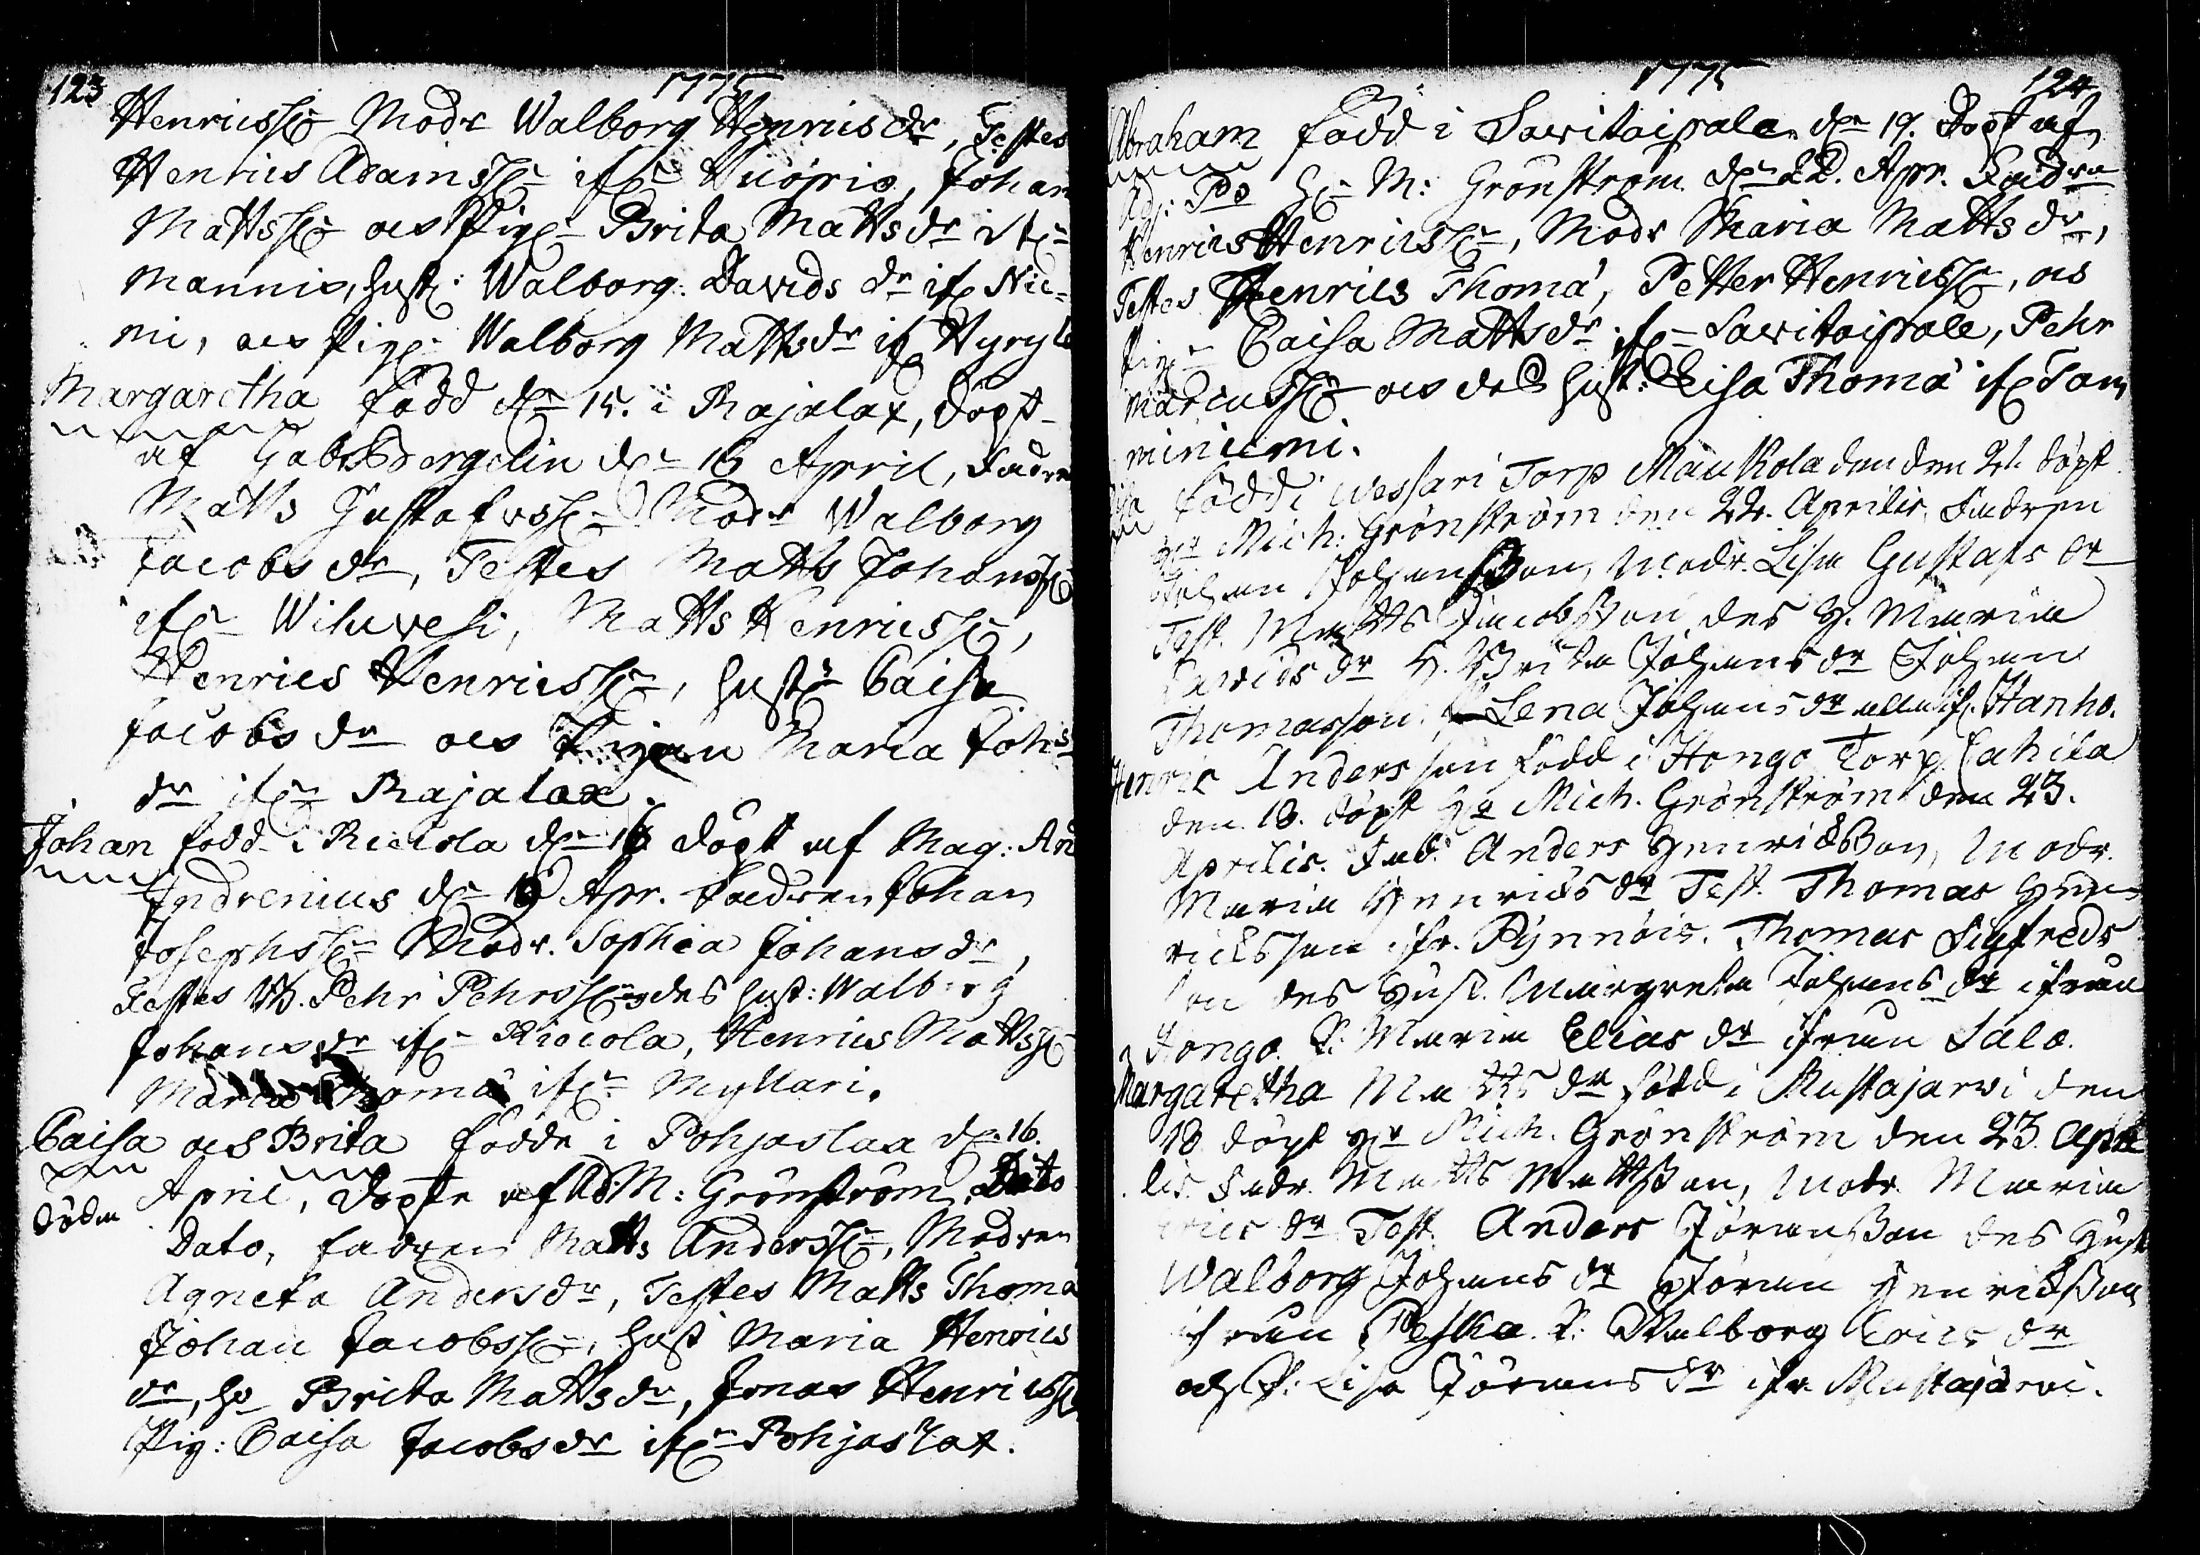 123 1775
Henricss: Modr Walborg Henricsdr, Testes
Henrics Adamss: ifr: Kuorpio, Johan
Mattss: ock Pig: Brita Mattsdr ifr:
Mannio, Hust: Walborg Davids dr ifr Nie=
mi, ock Pig: Walborg Mattsdr ifr Hyryle
Margaretha född den 15. i Rajalax, döpt
af Gabr: Bergelin den 16 April, Fadren
Matts Gustafvss: Modr Walborg
Jacobs dr, Testes Matts Johanss:
ifr: Wiluvesi, Matts Henricss:,
Henrics Henricss:, Hust: Caisa
Jacobs dr ock Pigan Maria Johs
dr ifr: Rajalax.
Johan född i Kiecola den 16 döpt af Mag: And
Indrenius den 19 Apr. Fadren Johan
Josephss: Modr. Sophia Johans dr,
Testes Pehr Pehrss: des Hust: Walborg
Johans dr ifr: Kiocola, Henrics Mattss:
Maria Thoma ifr: Myllari.
Caisa ock Brita födde i Pohjaslax d: 16.
döda April, döpte af Ad: M: Grönström Dato
Dato, fadren Matts Anderss:, Modren
Agneta Andersdr, Testes Matts Thoma
Johan Jacobss:, Hust Maria Henrics
dr, H: Brita Mattsdr, Jonas Henricss:
Pig: Caisa Jacobsdr ifr: Pohjaslax.
1775 124
Abraham född i Savitaipale den 19. döpt af
Adj: P: H: M: Grönström den 22. Apr. Fadren
Henrics Henricss:, Modr Maria Matts dr,
Testes Henrics Thoma, Petter Henricss:, ock
Pig: Caisa Mattsdr ifr: Savitaipale, Pehr
Marcuss: ock des Hust: Lisa Thoma ifr Tam
miniemi.
Lisa född i Wessari Torp Maukola den den 21. döpt
Hr Mich: Grönström den 22. Aprilis, Fadren
Johan Johansson, Modr. Lisa Gustafs dr
Test. Matts Jacobsson des H. Maria
Davids dr H. Brita Johans dr Johan
Thomasson. Lena Johans dr alla ifr. Hanho.
Henric Andersson född i Hongo Torp Cahila
den 18. döpt Hr Mich. Grönström den 23.
Aprilis. Fad: Anders Henricsson, Modr.
Maria Henrics dr Test. Thomas Hen=
ricsson ifr. Pynnöis. Thomas Sigfreds
son des Hust. Margreta Johans dr ifrån
Hongo. P: Maria Elias dr ifrån Salo.
Margaretha Matts dr född i Mustajarvi den
18 döpt Hr Mich. Grönström den 23. Apri
lis. Fadr. Matts Mattsson, Modr. Maria
Erics dr Test. Anders Jöransson des Hust
Walborg Johans dr Jöran Henricsson
ifrån Peska. P: Walborg Erics dr
och P: Lisa Jörans dr ifr. Mustajärvi.